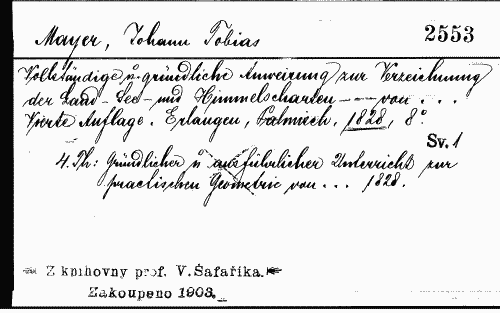 Mayer, Johann Tobias
2553
Vollständige u. gründliche Anweisung zur Verzeichnung
der Land- See- und Himmelscharten — von . . .
Vierte Auflage. Erlangen, Palmisch, 1828, 8°.
Sv. 1
4. Th: Gründlicher u. ausführlicher Unterricht zur
practischen Geometrie von . . . 1828.
Z knihovny prof. V. Šafaříka.
Zakoupeno 1903.